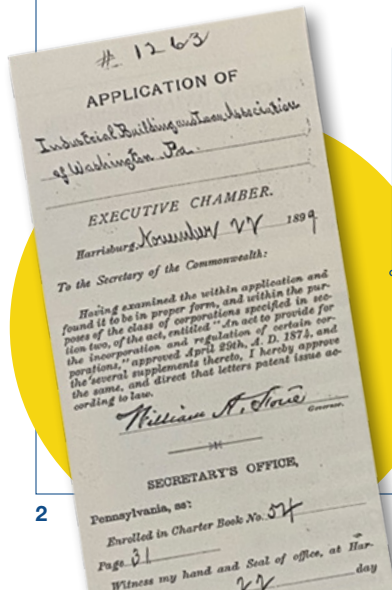 # 1263
APPLICATION OF
Industrial Building and Loan Association
of Washington Pa.
EXECUTIVE CHAMBER.
Harrisburg, November 22 1899
To the Secretary of the Commonwealth:
Having examined the within application and
found it to be in proper form, and within the pur-
poses of the class of corporations specified in sec-
tion two, of the act, entitled "An act to provide for
the incorporation and regulation of certain cor-
porations," approved April 29th, A. D. 1874, and
the several supplements thereto, I hereby approve
the same, and direct that letters patent issue ac-
cording to law.
William A. Stone
Governor.
SECRETARY'S OFFICE,
Pennsylvania, ss:
Enrolled in Charter Book No. 54
Page 31
Witness my hand and Seal of office, at Har-
22 day
2